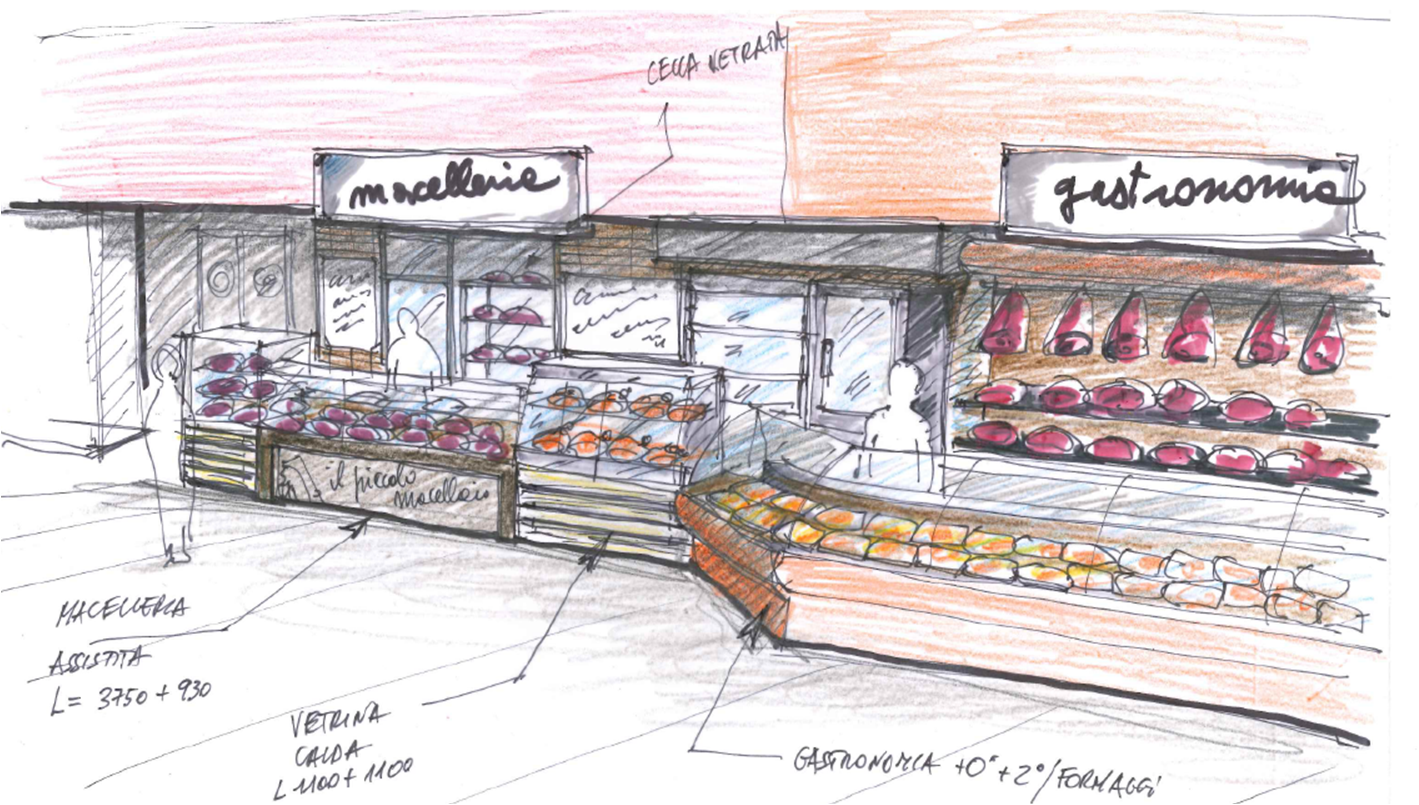 CELLA VETRATA
macelleria
gastronomia
il piccolo
macellaio
MACELLERIA
ASSISTITA
L= 3750 + 930
VETRINA
CALDA
L 1100 + 1100
GASTRONOMIA +0° +2°/FORMAGGI